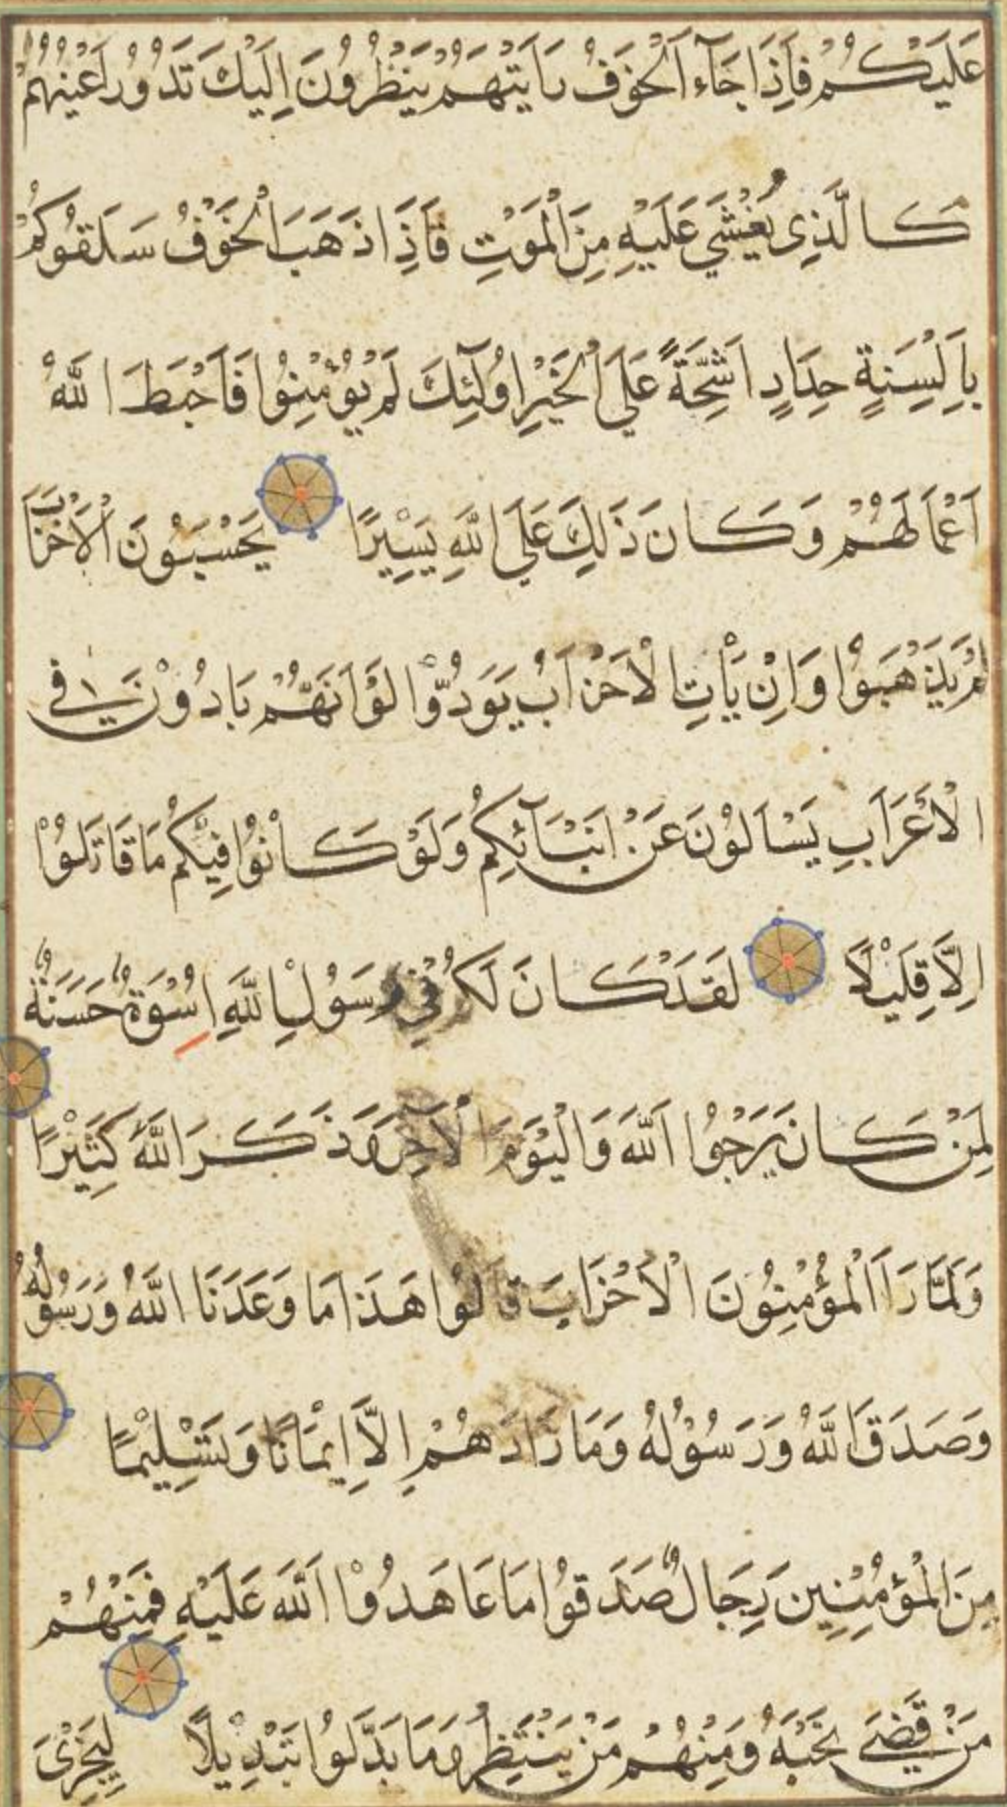 عَلَيْكُمْ فَاِذَا جَآءَ الْخَوْفُ رَاَيْتَهُمْ يَنْظُرُونَ اِلَيْكَ تَدُورُ اَعْيُنُهُمْ
كَالَّذِى يُغْشَى عَلَيْهِ مِنَ الْمَوْتِ فَاِذَا ذَهَبَ الْخَوْفُ سَلَقُوكُمْ
بِاَلْسِنَةٍ حِدَادٍ اَشِحَّةً عَلَى الْخَيْرِ اُولٰٓئِكَ لَمْ يُؤْمِنُوا فَاَحْبَطَ اللّٰهُ
اَعْمَالَهُمْ وَكَانَ ذَلِكَ عَلَى اللّٰهِ يَسِيْرًا يَحْسَبُوْنَ الْاَحْزَابَ
لَمْ يَذْهَبُوْا وَاِنْ يَأْتِ الْاَحْزَابُ يَوَدُّوْا لَوْ اَنَّهُمْ بَادُوْنَ فِى
الْاَعْرَابِ يَسْاَلُوْنَ عَنْ اَنْبَآئِكُمْ وَلَوْ كَانُوْا فِيْكُمْ مَا قَاتَلُوْا
اِلَّا قَلِيْلًا لَقَدْ كَانَ لَكُمْ فِىْ رَسُوْلِ اللّٰهِ اُسْوَةٌ حَسَنَةٌ
لِمَنْ كَانَ يَرْجُوا اللّٰهَ وَالْيَوْمَ الْاٰخِرَ وَذَكَرَ اللّٰهَ كَثِيْرًا
وَلَمَّا رَاَ الْمُؤْمِنُوْنَ الْاَحْزَابَ قَالُوْا هَذَا مَا وَعَدَنَا اللّٰهُ وَرَسُوْلُهُ
وَصَدَقَ اللّٰهُ وَرَسُوْلُهُ وَمَا زَادَهُمْ اِلَّا اِيْمَانًا وَتَسْلِيْمًا
مِنَ الْمُؤْمِنِيْنَ رِجَالٌ صَدَقُوْا مَا عَاهَدُوْا اللّٰهَ عَلَيْهِ فَمِنْهُمْ
مَنْ قَضَى نَحْبَهُ وَمِنْهُمْ مَنْ يَنْتَظِرُ وَمَا بَدَّلُوْا تَبْدِيْلًا لِيَجْزِىَ